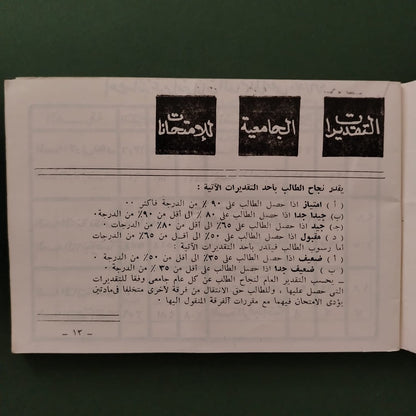 التقديرات الجامعية للامتحانات
يقدر نجاح الطالب بأحد التقديرات الآتية :
( أ ) امتياز اذا حصل الطالب على ٩٠ ٪ من الدرجة فأكثر ..
(ب) جيدا جدا اذا حصل الطالب على ٨٠ ٪ الى أقل من ٩٠٪ من الدرجة.
(جـ) جيد اذا حصل الطالب على ٦٥٪ الى أقل من ٨٠٪ من الدرجات .
( د ) مقبول اذا حصل الطالب على ٥٠٪ الى أقل من ٦٥٪ من الدرجات
أما رسوب الطالب فيقدر بأحد التقديرات الآتية :
( أ ) ضعيف اذا حصل الطالب على ٣٥٪ الى أقل من ٥٠ ٪ من الدرجة .
( ب ) ضعيف جدا اذا حصل الطالب على أقل من ٣٥ ٪ من الدرجة .
ــ يحسب التقدير العام لنجاح الطلب عن كل عام جامعى وفقا للتقديرات
التى حصل عليها ، وللطالب حق الانتقال من فرقة لأخرى متخلفا فى مادتين
يؤدى الامتحان فيهما مع مقررات الفرقة المنقول اليها .
ــ ١٣ ــ